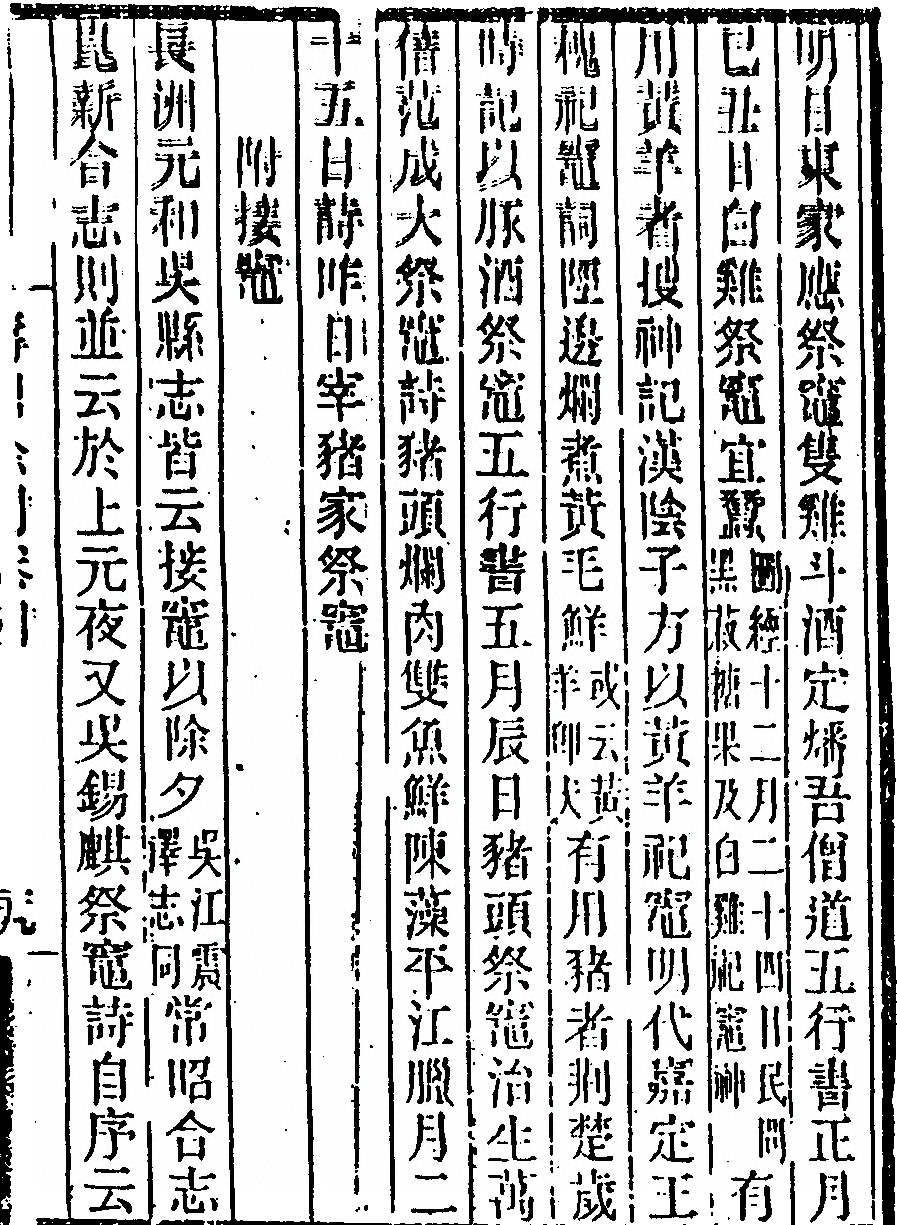 明日東家應祭竈雙雞斗酒定燔吾僧道五行書正月
己丑日白雞祭竈宜蠶圖經十二月二十四日民間黑荳糖果及白雞祀竈神有
用黃羊者搜神記漢陰子方以黃羊祀竈明代嘉定王
槐祀竈詞陘邊爛煮黃毛鮮或云黃羊卽犬有用豬者荆楚歲
時記以豚酒祭竈五行書五月辰日豬頭祭竈治生萬
倍范成大祭竈詩豬頭爛肉雙魚鮮陳藻平江臘月二
十五日詩昨日宰豬家祭竈
附接竈
長洲元和吳縣志皆云接竈以除夕吳江震澤志同常昭合志
崑新合志則並云於上元夜又吳錫麒祭竈詩自序云